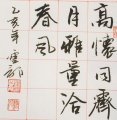 高懷同霽
月雅量洽
春風
乙亥年